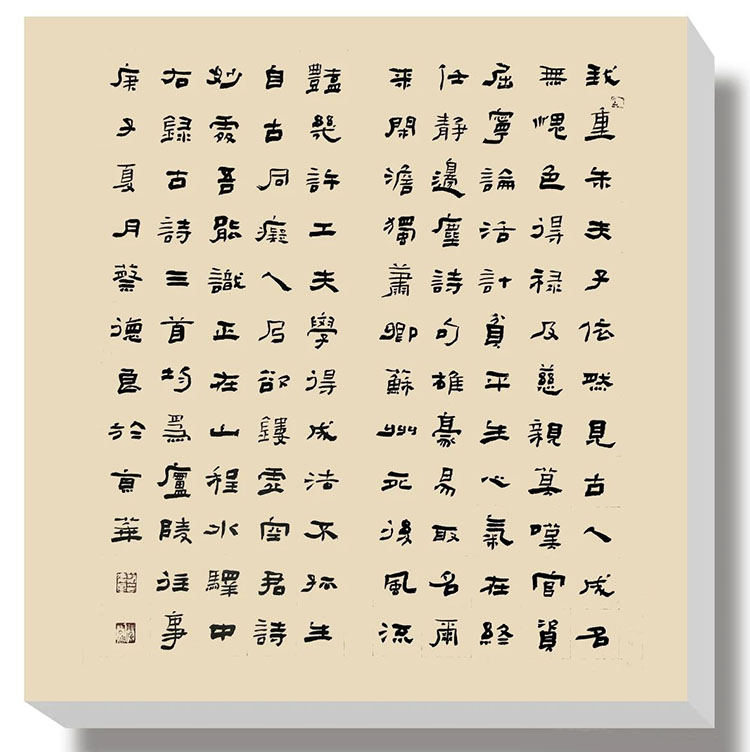 我重朱夫子依然見古人成名
無愧色得祿及慈親莫嘆官資
屈寧論活計貧平生心氣在終
任靜邊塵詩句雄豪易取名爾
来閑澹獨蕭卿蘇州死後風流
豔幾許工夫學得成法不孤生
自古同癡人乃欲鏤虛空君詩
妙處吾能識正在山程水驛中
右錄古詩三首均爲廬陵往事
庚子夏月蔡德良於京華